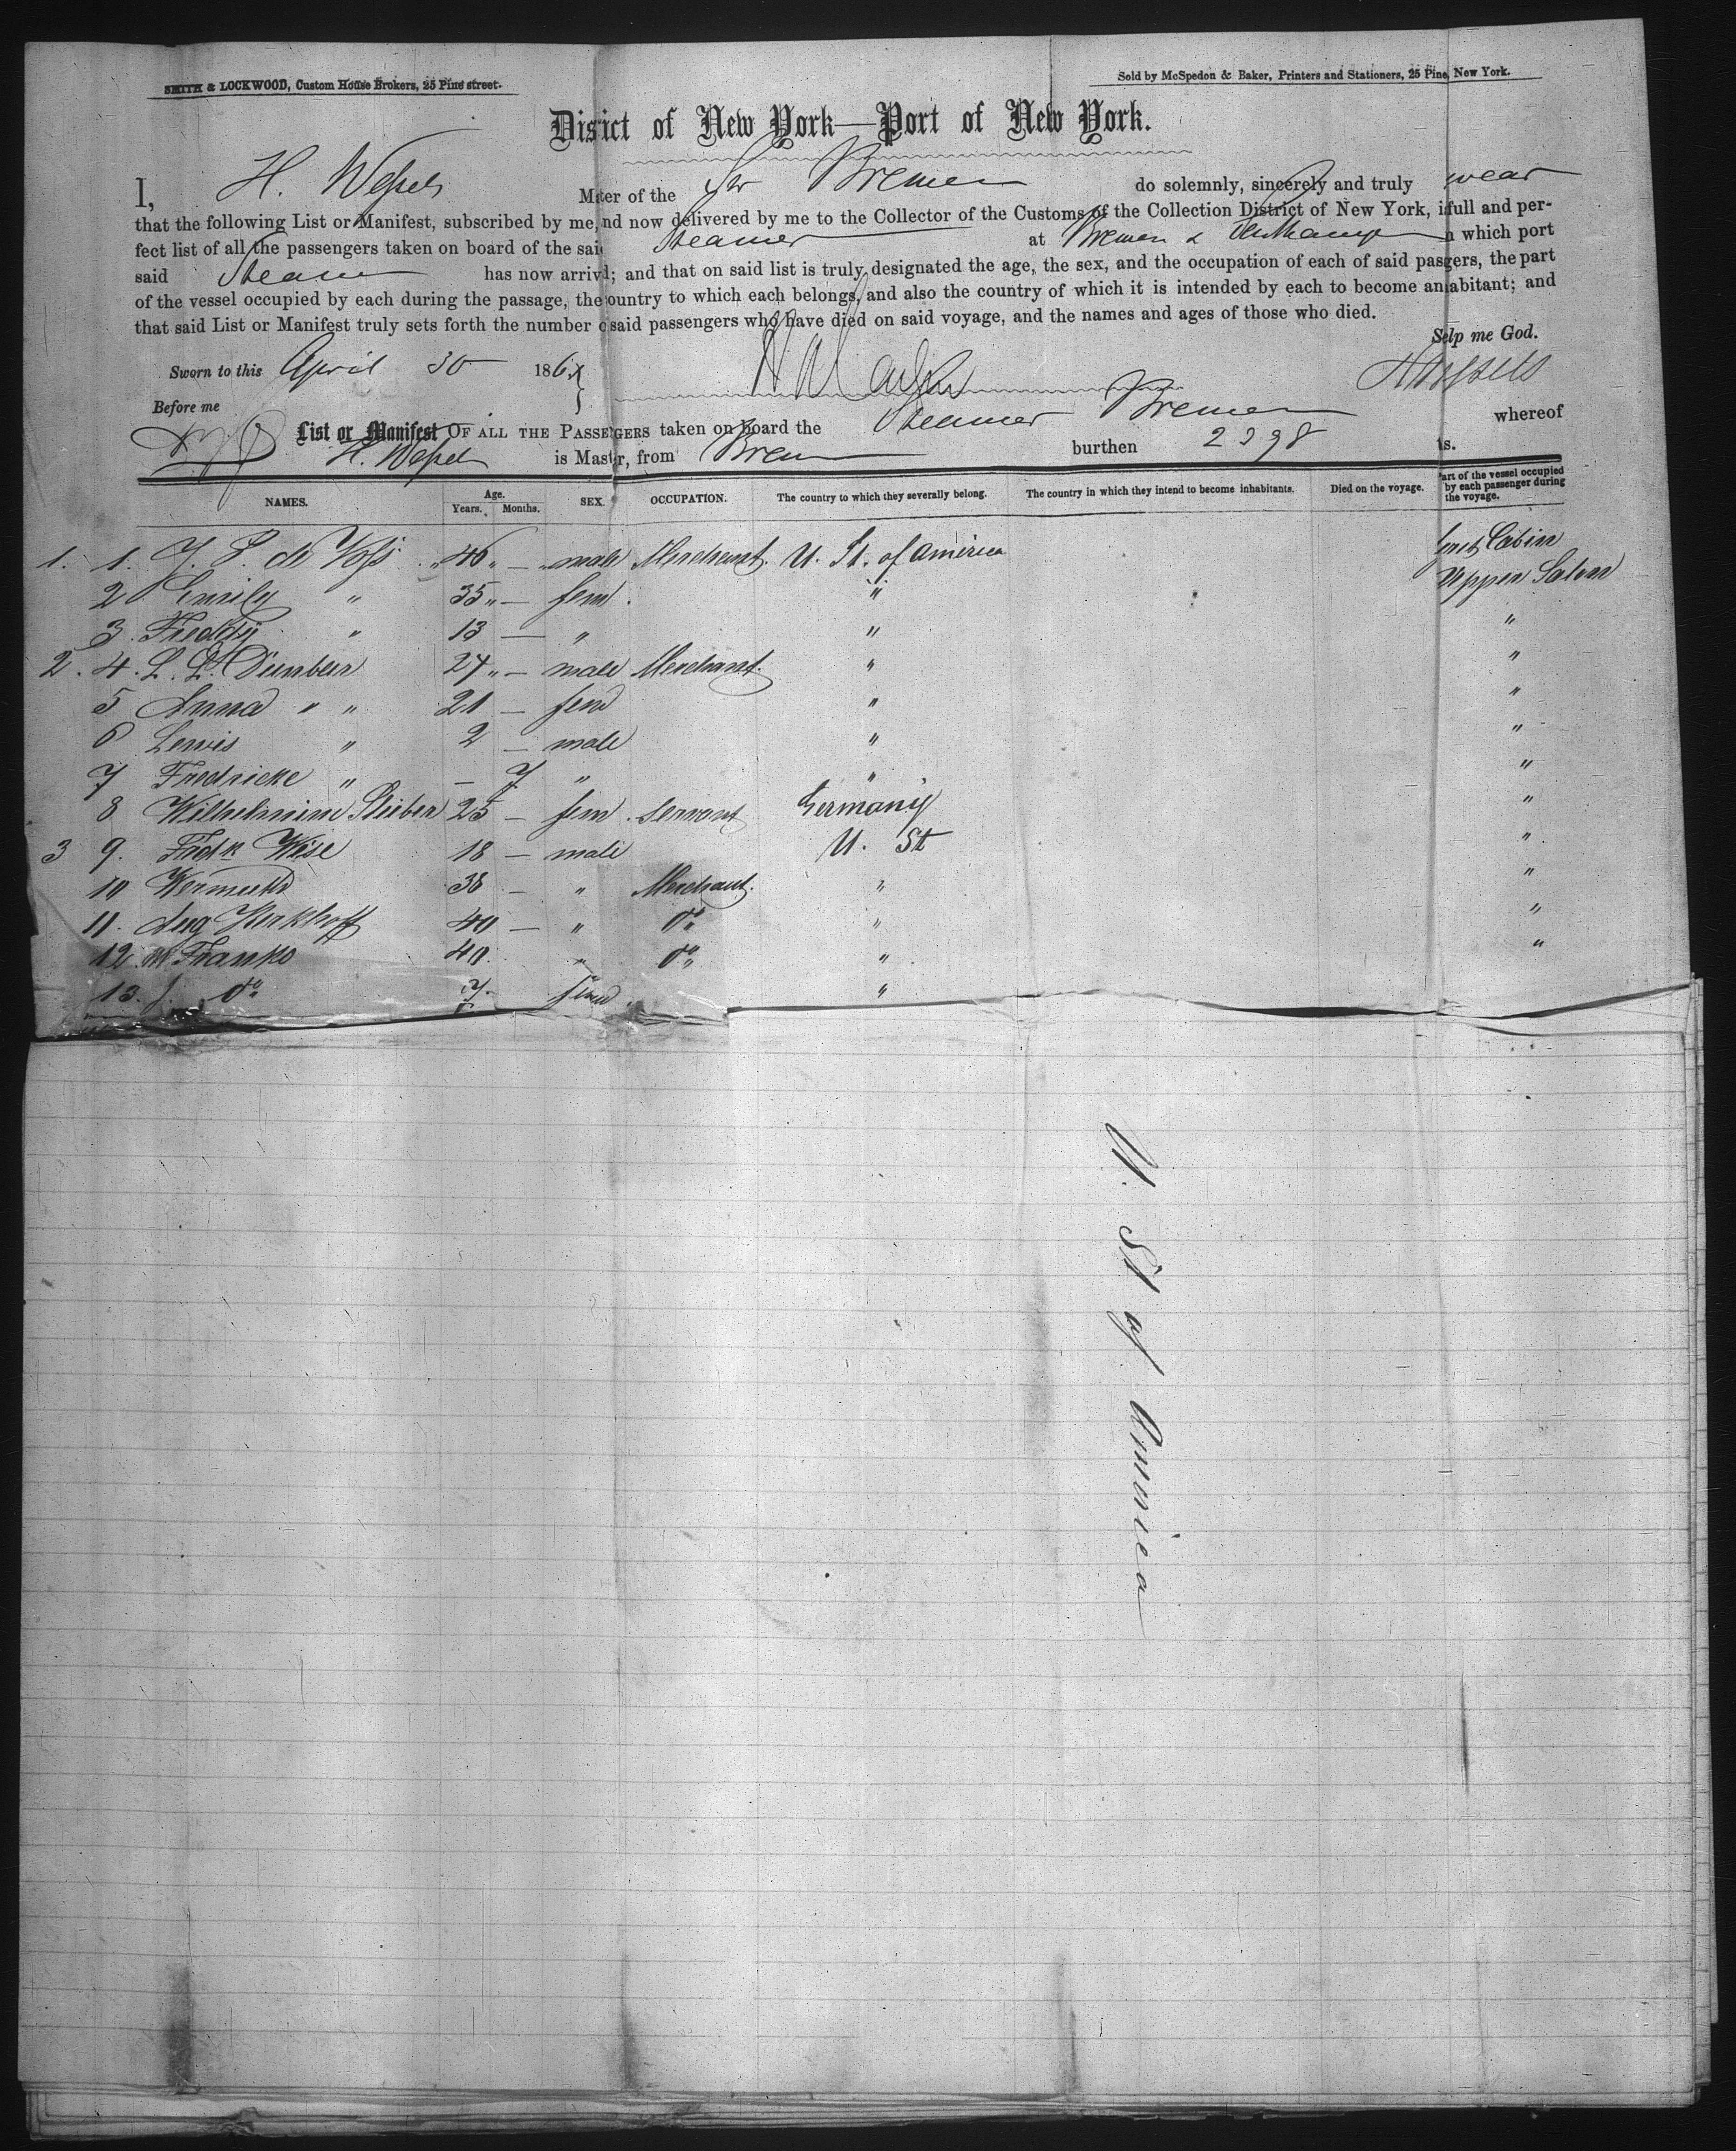 SMITH & LOCKWOOD, Custom House Brokers, 25 Pine street.
Sold by McSpedon & Baker, Printers and Stationers, 25 Pine, New York.
Disrict of New York—Port of New York.
I, H. Wessels Mter of the Str Bremen do solemnly, sincerely and truly wear
that the following List or Manifest, subscribed by me, nd now delivered by me to the Collector of the Customs of the Collection District of New York, i full and per-
fect list of all the passengers taken on board of the sai Steamer at Bremen & which port
said Steam has now arrivd; and that on said list is truly designated the age, the sex, and the occupation of each of said pasgers, the part
of the vessel occupied by each during the passage, the ountry to which each belongs, and also the country of which it is intended by each to become an abitant; and
that said List or Manifest truly sets forth the number o said passengers who have died on said voyage, and the names and ages of those who died.
Selp me God.
Sworn to this April 30 186
H Wessels
Before me
List or Manifest OF ALL THE PASSEGERS taken on board the Steamer Bremen whereof
H. Wessels is Mastr, from Brem burthen 2398 s.
NAMES. Age. Years. Months. SEX. OCCUPATION. The country to which they severally belong. The country in which they intend to become inhabitants. Died on the voyage. art of the vessel occupied by each passenger during the voyage.
1. 1. de Voss 46 — male Merchant. U. St. of America Cabin
2 Emily " 35 " — fem. " Upper Salon
3. Freddy " 13 — " " "
2. 4. L. Dunbeer 24 " — male Merchant. " "
5 Anna " " 21 — fem " "
6 Lewis " 2 — male " "
7 Fredricke " — 7. " " "
8 Wilhelmine Stieber 25 — fem. servant Germany "
3 9. Fredk Wise 18 — male U. St "
10 Wermuth 38 — " Merchant. " "
11. Aug Kerkhoff 40 — " do " "
12 M Franko 40 " do " "
13. do 7 fem. "
U. St of America